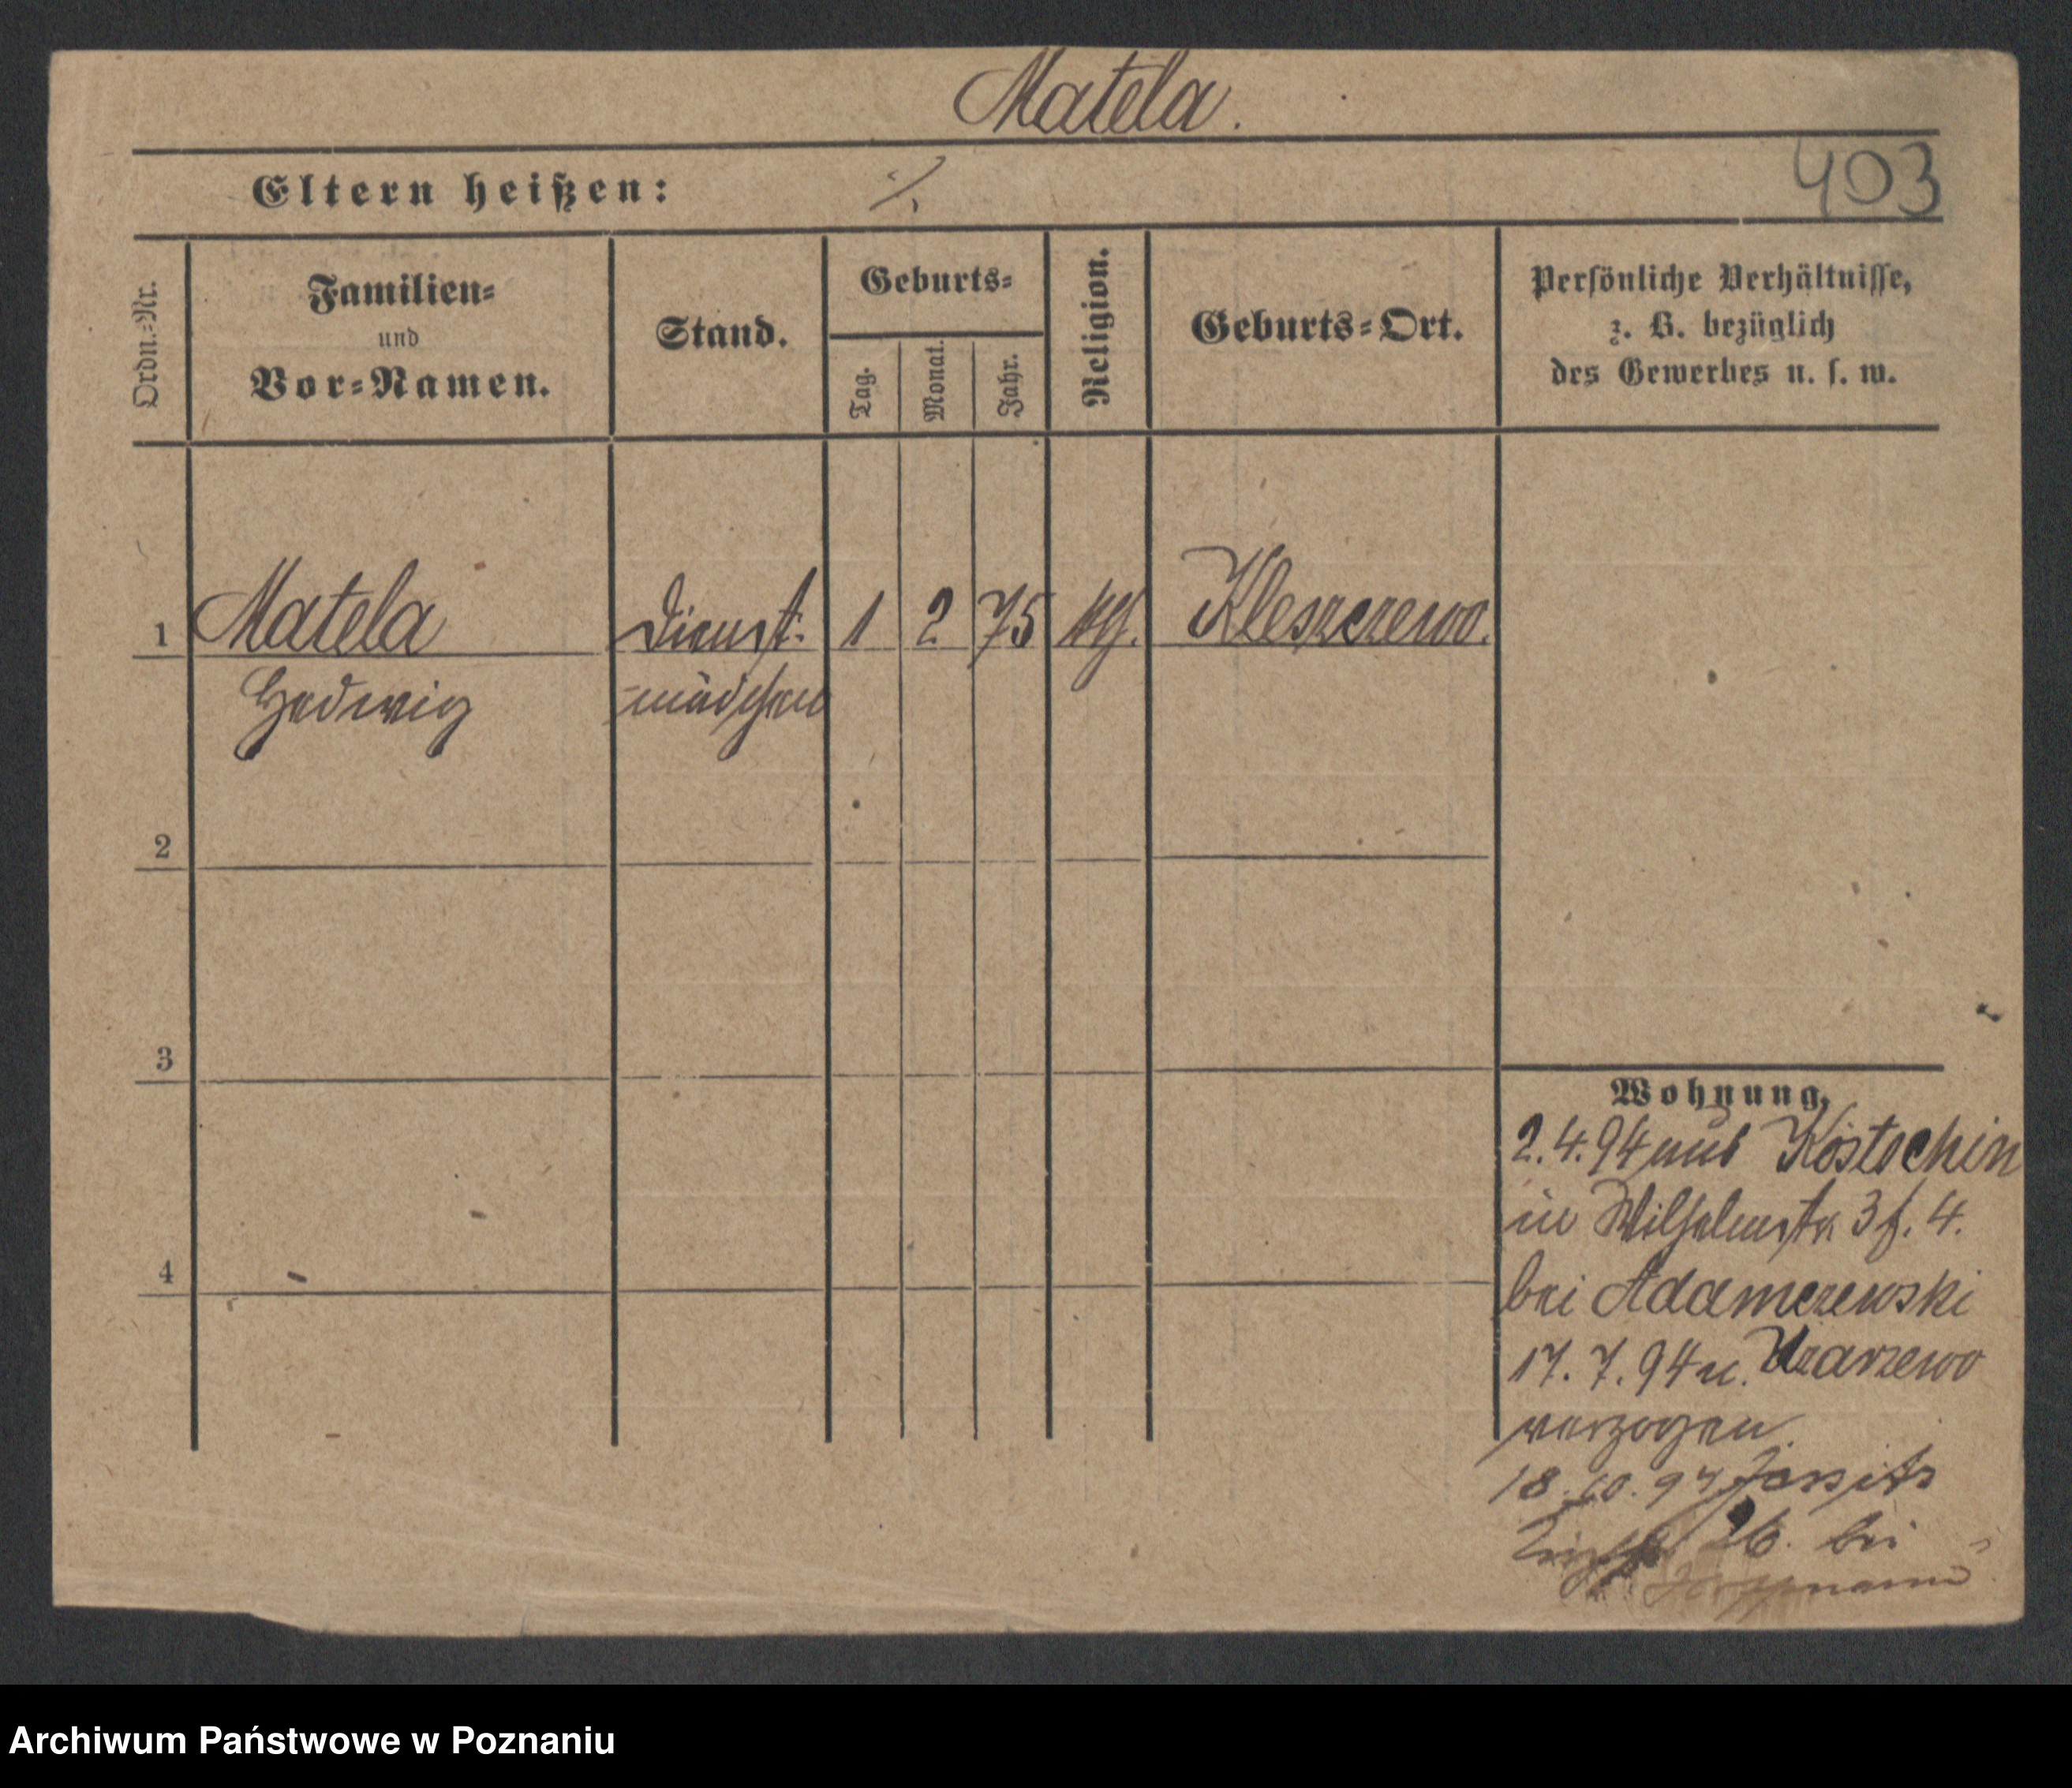 Matela.
Eltern heißen: ·/.
403
Ordn.-Nr.
Familien-
und
Vor-Namen.
Stand.
Geburts-
Tag.
Monat.
Jahr.
Religion.
Geburts-Ort.
Persönliche Verhältnisse,
z. B. bezüglich
des Gewerbes u. s. w.
1 Matela Dienst- 1 2 75 kth. Kleszczewo.
Hedwig -mädchen
2
3
4
Wohnung.
2.4.94 aus Kostschin
in Wilhelmstr. 3 f. 4.
bei Adamczewski
17.7.94 n. Uzarzewo
verzogen.
18.10.94
26. bei
Archiwum Państwowe w Poznaniu